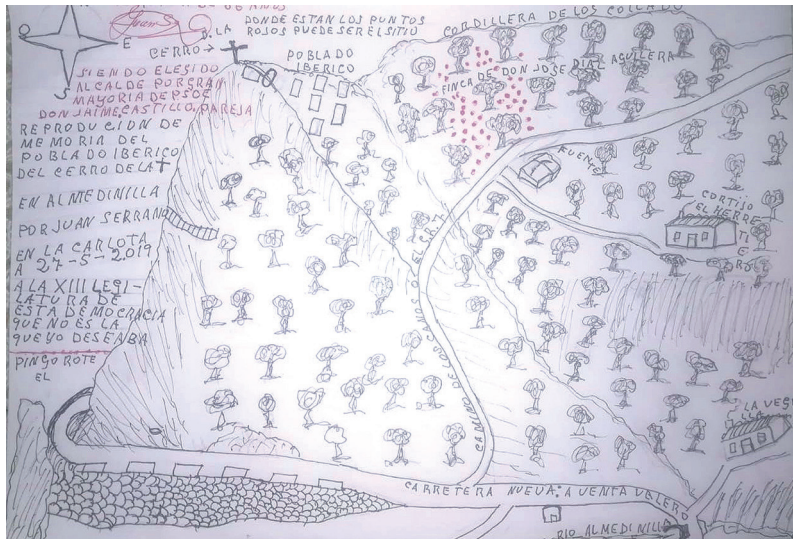 DONDE ESTAN LOS PUNTOS
ROJOS PUEDE SER EL SITIO
E
S
CERRO→
DLA
POBLADO
IBERICO
CORDILLERA DE LOS COLLADO
FINCA DE DON JOSE DIAZ AGUILERA
SIENDO ELEGIDO
ALCALDE POR GRAN
MAYORIA DE PSOE
DON JAIME CASTILLO PAREJA
REPRODUCION DE
MEMORIA DEL
POBLADO IBERICO
DEL CERRO DE LA
EN ALMEDINILLA
POR JUAN SERRANO
EN LA CARLOTA
A 27-5-2019
A LA XIII LEGI-
LATURA DE
ESTA DEMOCRACIA
QUE NO ES LA
QUE YO DESEABA
PINGOROTE
EL
FUENTE
CORTIJO
EL HERRE
TI
E
RO
LA VEGI
LLA
CAMINO DE LOS
CARRETERA NUEVA: A VENTA VALERO
RIO ALMEDINILLA